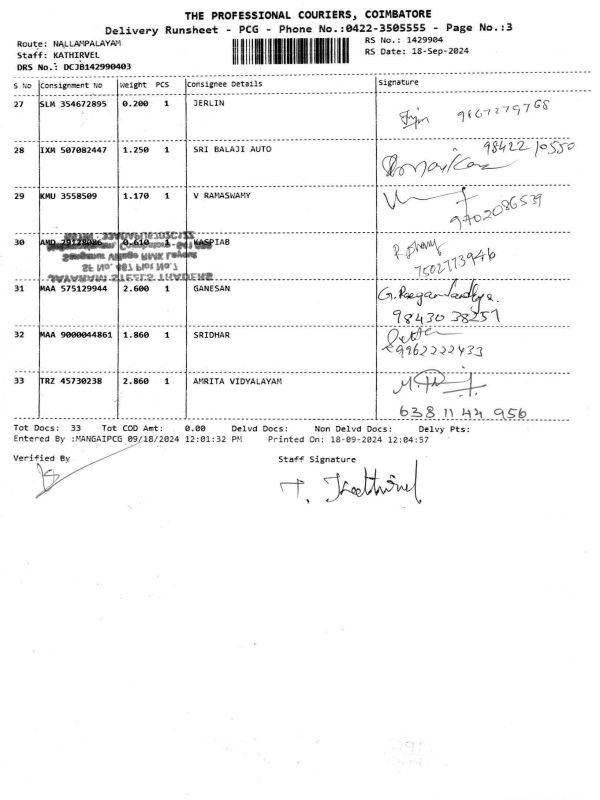 THE PROFESSIONAL COURIERS, COIMBATORE
Delivery Runsheet - PCG - Phone No.:0422-3505555 - Page No.:3
Route: NALLAMPALAYAM RS No.: 1429904
Staff: KATHIRVEL RS Date: 18-Sep-2024
DRS No.: DCJB142990403
S No Consignment No Weight PCS Consignee Details Signature
27 SLM 354672895 0.200 1 JERLIN
9867279768
28 IXM 507082447 1.250 1 SRI BALAJI AUTO 98422 10550
29 KMU 3558509 1.170 1 V RAMASWAMY
9702086539
30 AMD 79128086 0.610 1 KASPIAB
7502773946
SF No. 467 Plot No.7
JAYARAM STEELS TRADERS
31 MAA 575129944 2.600 1 GANESAN
98430 38257
32 MAA 9000044861 1.860 1 SRIDHAR
9962222433
33 TRZ 45730238 2.860 1 AMRITA VIDYALAYAM
638 11 44 956
Tot Docs: 33 Tot COD Amt: 0.00 Delvd Docs: Non Delvd Docs: Delvy Pts:
Entered By :MANGAIPCG 09/18/2024 12:01:32 PM Printed On: 18-09-2024 12:04:57
Verified By Staff Signature
T. Kathirvel